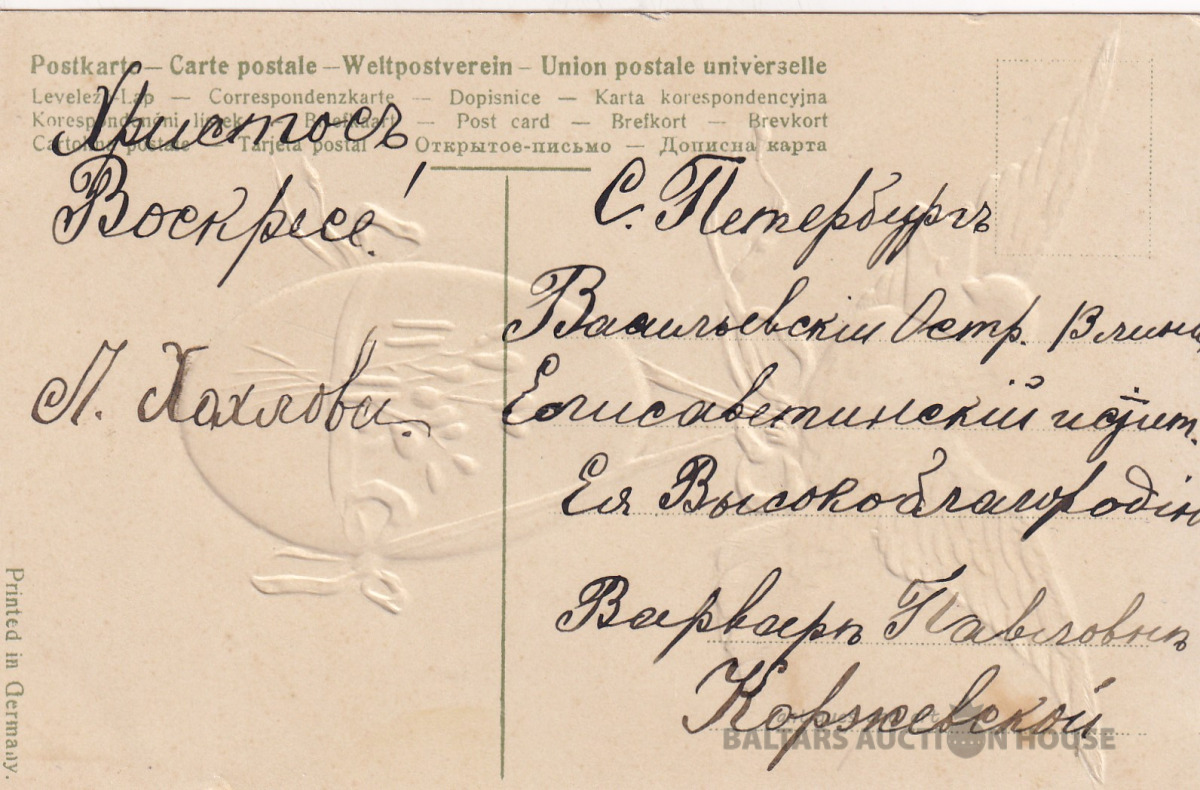 Postkarte – Carte postale – Weltpostverein – Union postale universelle
Levelező-Lap — Correspondenzkarte — Dopisnice — Karta korespondencyjna
Korespondenční lístek — Briefkaart — Post card — Brefkort — Brevkort
Cartolina postale — Tarjeta postal — Открытое-письмо — Дописна карта
Христосъ
Воскресе!
Л. Хохлова.
С. Петербургъ
Васильевскій Остр. 13 лин
Елисаветинскій
Ея Высокоблагородію
Варварѣ Павловнѣ
Коржевской
Printed in Germany.
BALTARS AUCTION HOUSE